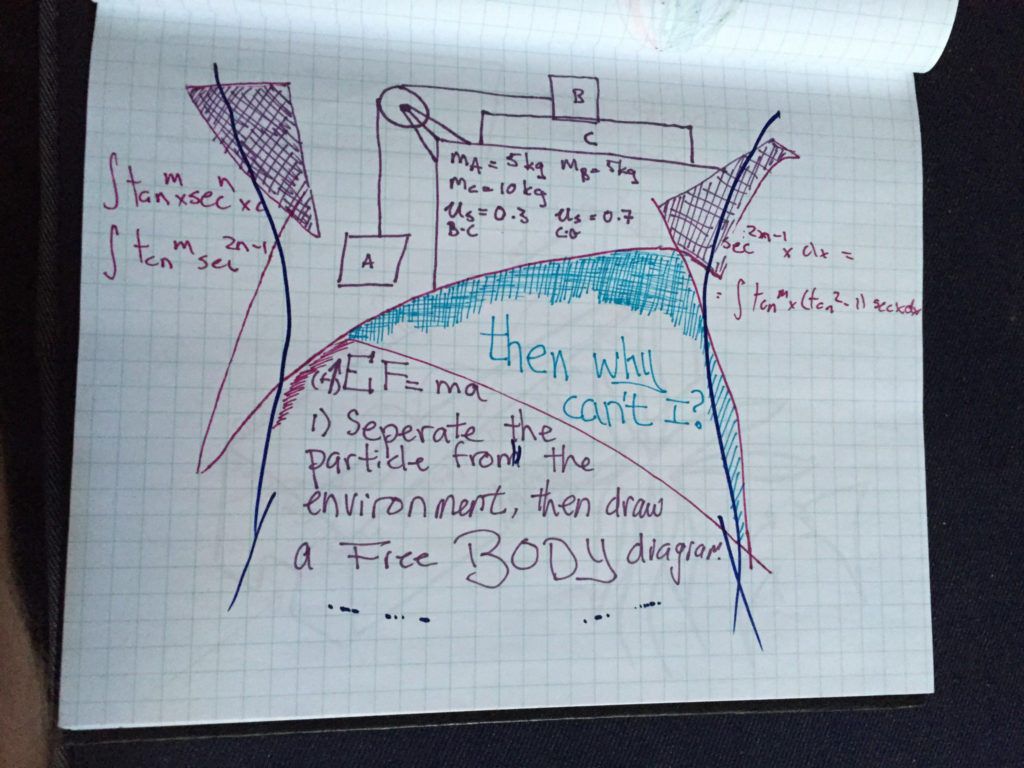 B
C
mA = 5kg mB = 5kg
mC = 10kg
us = 0.3 us = 0.7
B-C C-G
A
∫tan^m x sec^n x
∫tan^m sec^2n-1
sec^2m-1 x dx =
= ∫tan^m x (tan^2 - 1) sec x dx
then why
can't I?
(+↑) ΣF = ma
1) Seperate the
particle from the
environment, then draw
a Free BODY diagram.